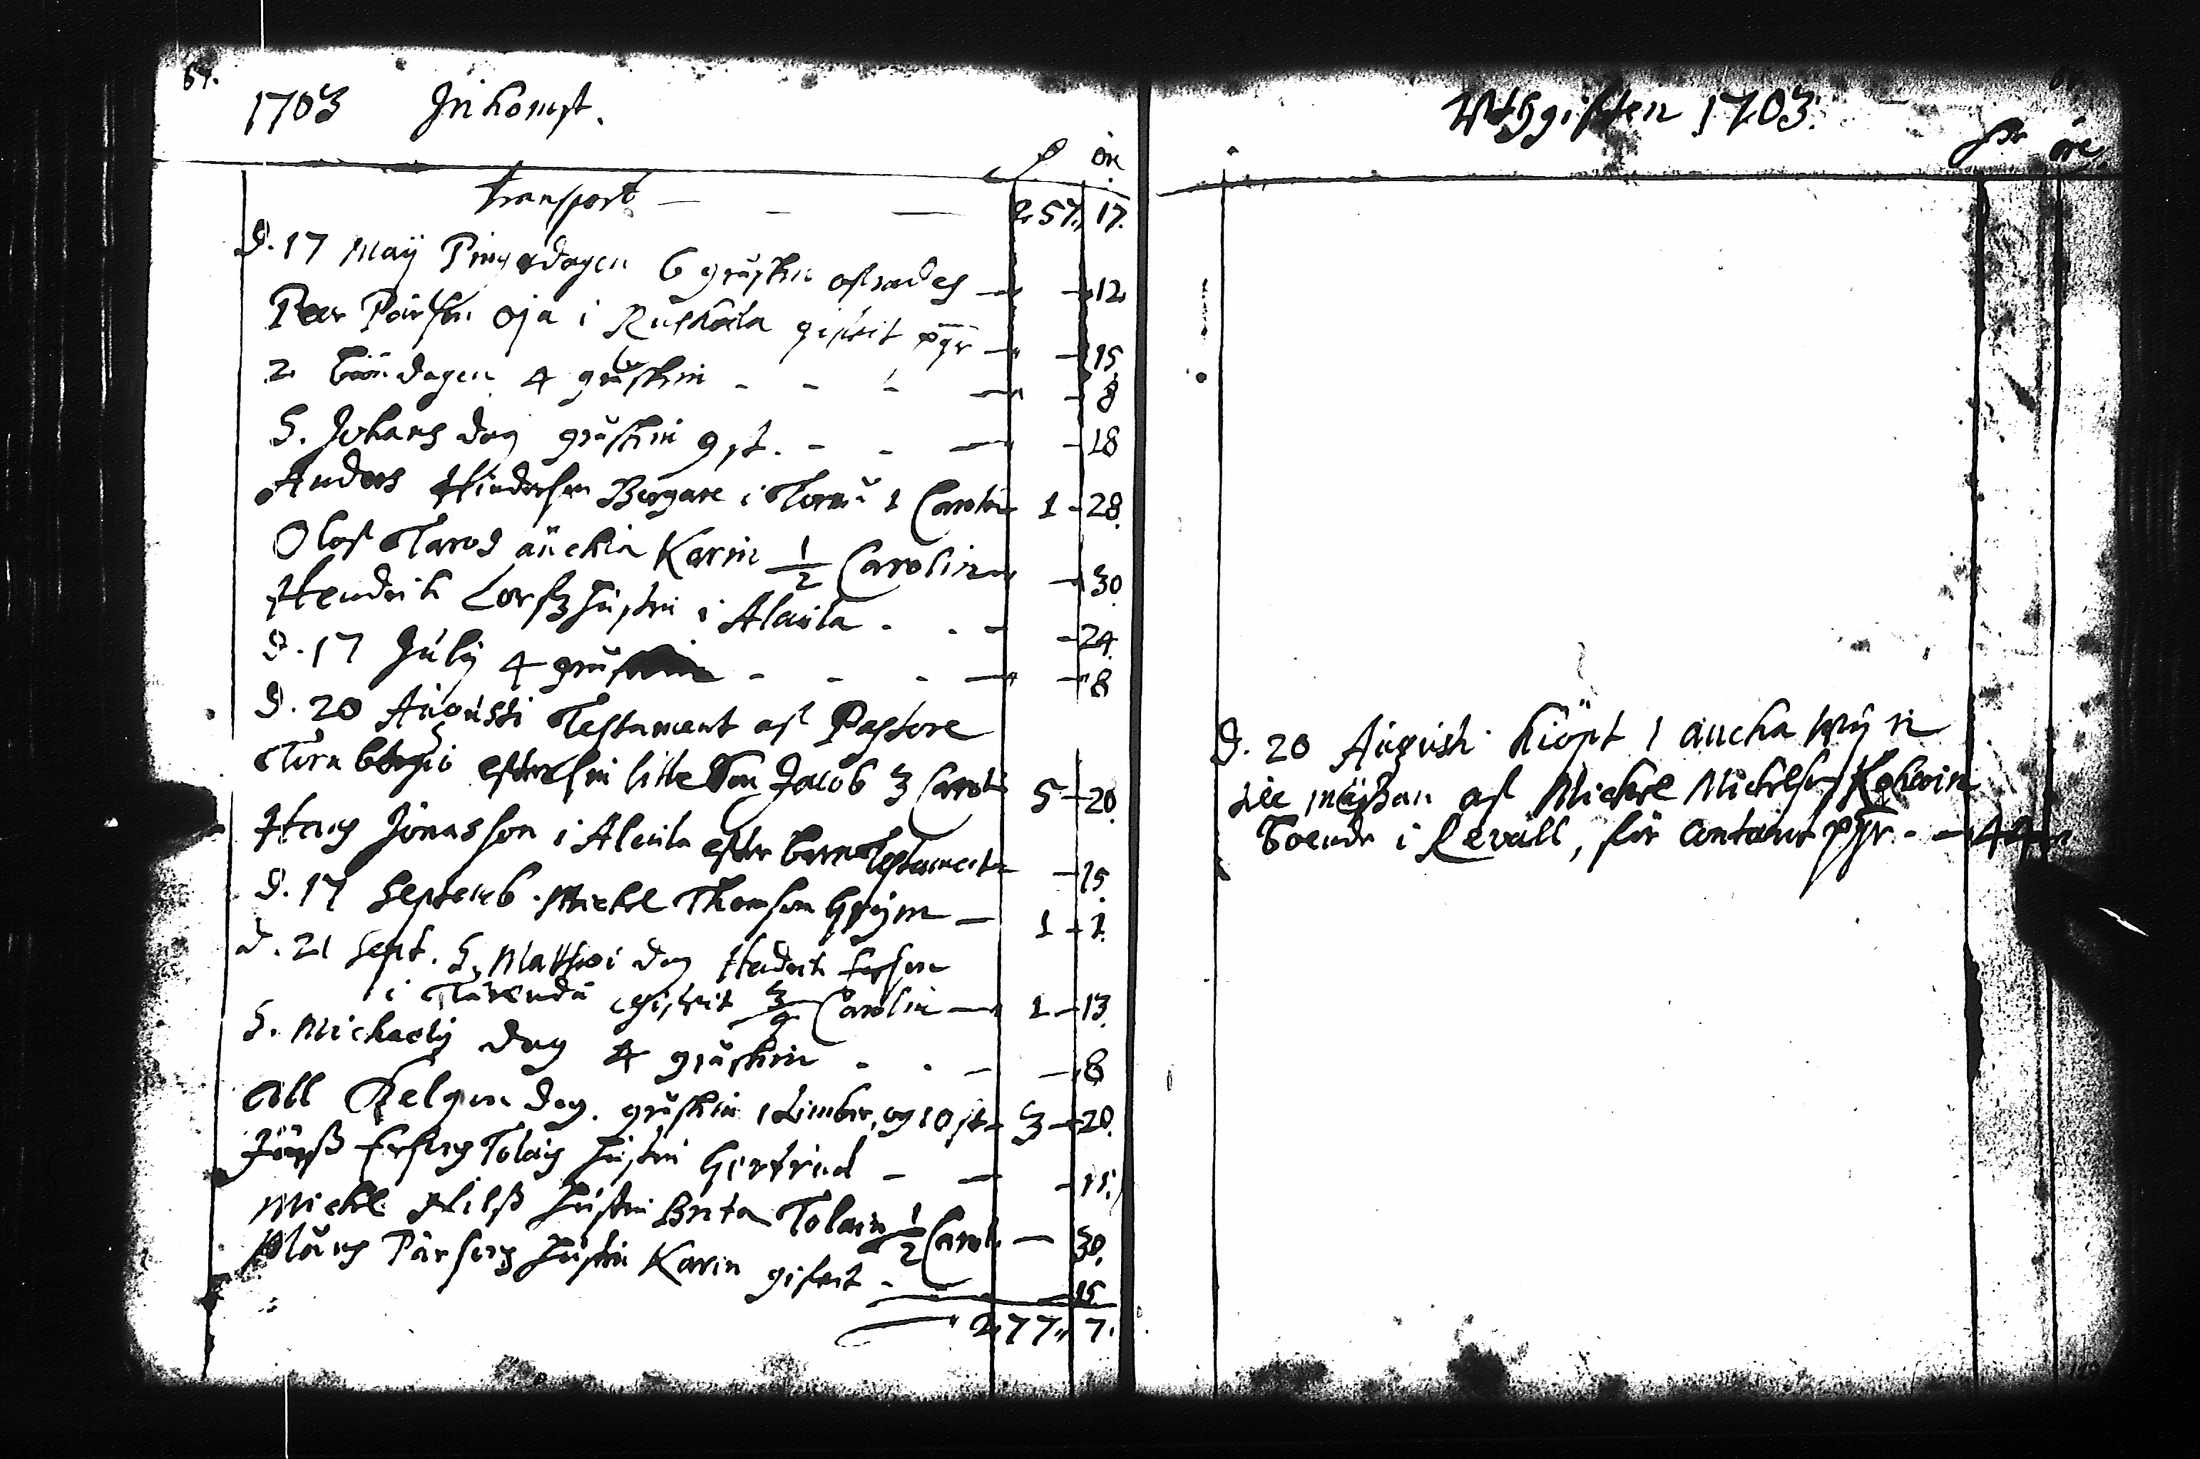 1703 Inkomst.
öre
Transport — — — 257. 17.
D. 17 Maÿ Pingesdagen 6 gruskin offrades — 12
Peer Pärsson Oja i Ruskola gifvit pgr — 15
2 Böndagen 4 gruskin - - - — 8
S. Johans dag gruskin 9 st. - - — 18
Anders Hindersson Borgare i Torn: 1 Carolin 1 - 28.
Olof Tarods änckia Karin 1/2 Carolin — 30
Hendrich Larsz hustru i Alkula - - - 24.
D. 17 Julÿ 4 gruskin - - - — 8
D. 20 Augusti Testament af Pastore
Tornbergio effter sin lille Son Jacob 3 Caroli 5 - 20.
Hans Jönasson i Alkula effter barnet Testamente — 15
D. 17 Septemb. Mickel Thomson — 1 - 2.
D. 21 Sept. S. Matthæi dag Hendrich
i Tärendö gifvit 3/4 Carolin — 1 - 13.
S. Michaelis dag 4 gruskin - - - — 8
All Helgon dag. gruskin 1 og 10 st. 3 - 20.
Ersons Tolais hustru Gertrud - — - 15.
Mickel Nilß hustru Brita Tolain 1/2 Caroli — 30.
Måns Pärsons hustru Karin gifvit - — 15.
277. 7.
Uthgifften 1703.
Sr öre
D. 20 Augusti kiöpt 1 ancka wÿn
till mäßan af Mickel Mickelson
Boende i Revall, för Contant pgr - — 44